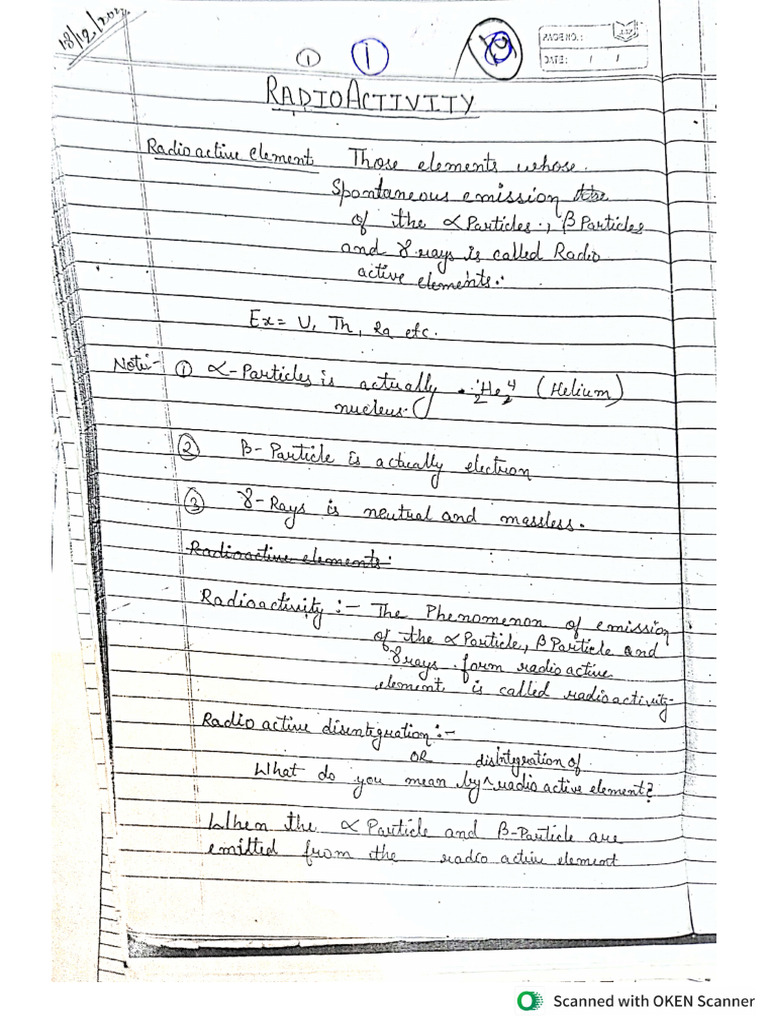 18/12/202
1 1
PAGE NO.:
DATE: / /
RADIOACTIVITY
Radioactive element Those elements whose.
Spontaneous emission
of the α Particles, β Particles
and γ rays is called Radio
active elements.
Ex = U, Th, Ra etc.
Note:- ① α-Particles is actually ₂He⁴₂ (Helium)
nucleus.
② β-Particle is actually electron
③ γ-Rays is neutral and massless.
Radioactive elements:
Radioactivity :- The Phenomenon of emission
of the α Particle, β Particle and
γ rays form radio active
element is called radioactivity-
Radio active disentigration :-
OR disintegration of
What do you mean by ^ radio active element?
When the α Particle and β-Particle are
emitted from the radio active element
Scanned with OKEN Scanner